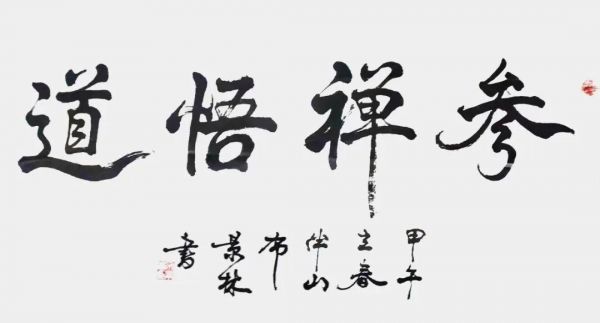 参禅悟道
甲午
立春
伴山
布
景林
書